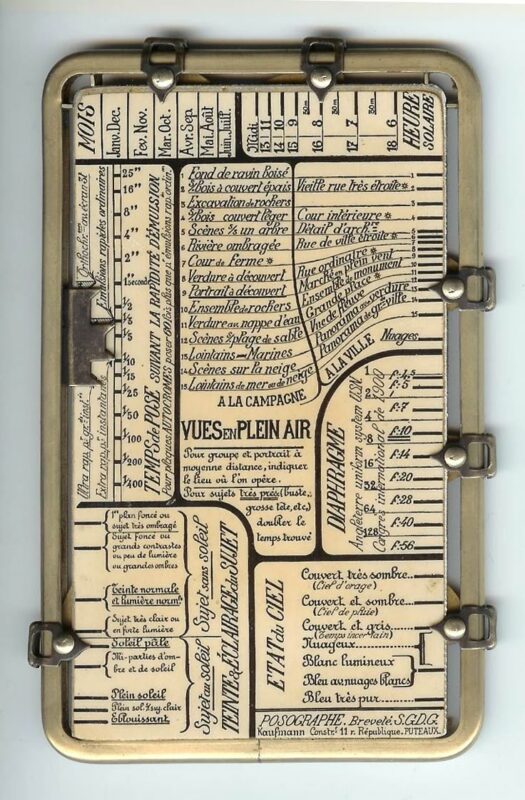 MOIS
Janv. Dec.
Fev. Nov.
Mar. Oct.
Avr. Sep
Mai. Août
Juin. Juill.
Midi
13 11
14 10
15 9
16 8
17 7
18 6
30m
30m
30m
HEURE
SOLAIRE
Emulsions rapides ordinaires
25"
20"
15"
10"
5"
4"
3"
2"
1 seconde
1/2
1/3
1/5
1/10
1/15
1/25
1/50
1/100
1/200
1/400
TEMPS de POSE SUIVANT LA RAPIDITÉ D'ÉMULSION
1 Fond de ravin boisé
2 S/bois à couvert épais
3 Excavation de rochers
4 S/bois couvert léger
5 Scènes s/s un arbre
6 Rivière ombragée
7 Cour de Ferme *
8 Verdure à découvert
9 Portrait à découvert
10 Ensemble de rochers
11 Verdure au nappe d'eau
12 Scènes s/ plage de sable
13 Lointains - Marines
14 Scènes sur la neige
15 Lointains de mer ou de neige
Vieille rue très étroite *
Cour intérieure *
Détail d'archre
Rue de ville étroite *
Rue ordinaire *
Marché en plein vent
Ensemble de monument
Grande place *
Vue de fleuve
Panorama avec verdure
Panorama de gde ville
Nuages
A LA VILLE
A LA CAMPAGNE
VUES EN PLEIN AIR
Pour groupe et portrait à
moyenne distance, indiquer
le lieu où l'on opère.
Pour sujets très près (buste,
grosse tête, etc.)
doubler le
temps trouvé
DIAPHRAGME
Angleterre uniform system U.S.N.
Congres international de 1900
1
2
4
8
16
32
64
128
F:4,5
F:5
F:7
F:10
F:14
F:20
F:28
F:40
F:56
1er plan foncé ou
sujet très ombragé
Sujet foncé ou
grands contrastes
ou peu de lumière
ou grandes ombres
Teinte normale
et lumière norme
Sujet très clair ou
en forte lumière
Soleil pâle
Mi-parties d'om-
bre et de soleil
Plein soleil
Plein sol. s/ suj. clair
Eblouissant
Sujet sans soleil
Sujet au soleil
TEINTE & ÉCLAIRAGE du SUJET
ETAT du CIEL
Couvert très sombre
(Ciel d'orage)
Couvert et sombre
(Ciel de pluie)
Couvert et gris
(Temps incertain)
Nuageux
Blanc lumineux
Bleu av. nuages blancs
Bleu très pur
POSOGRAPHE. Breveté S.G.D.G.
Kaufmann Constr. 11 r. République. PUTEAUX.